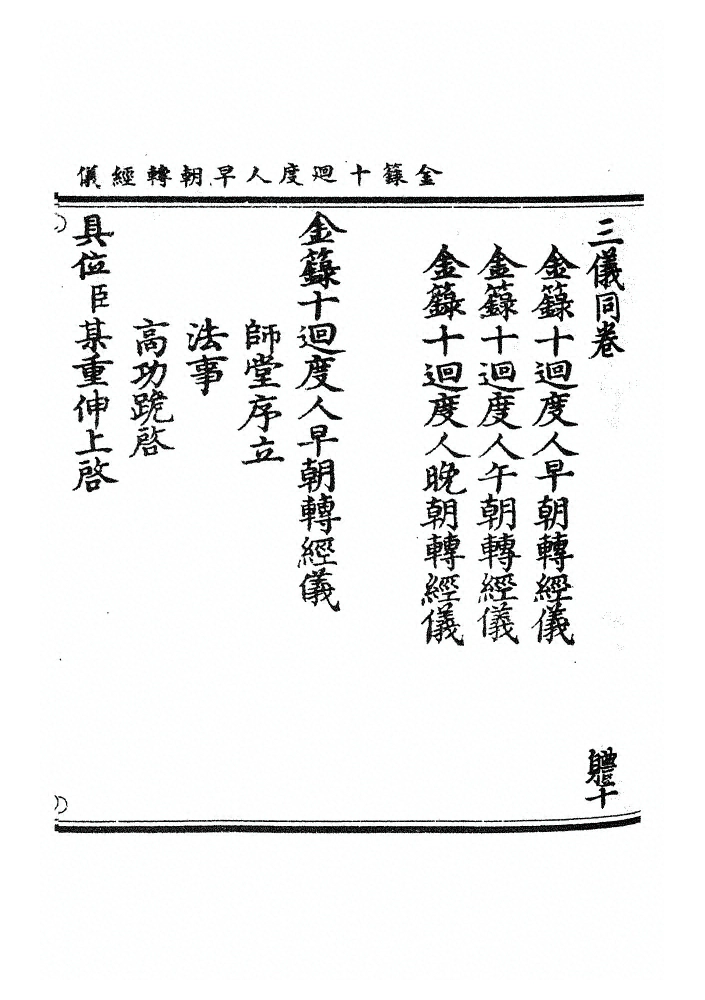 金籙十迴度人早朝轉經儀
三儀同卷
體十
金籙十迴度人早朝轉經儀
金籙十迴度人午朝轉經儀
金籙十迴度人晚朝轉經儀
金籙十迴度人早朝轉經儀
師堂序立
法事
高功跪啓
具位臣某重伸上啓